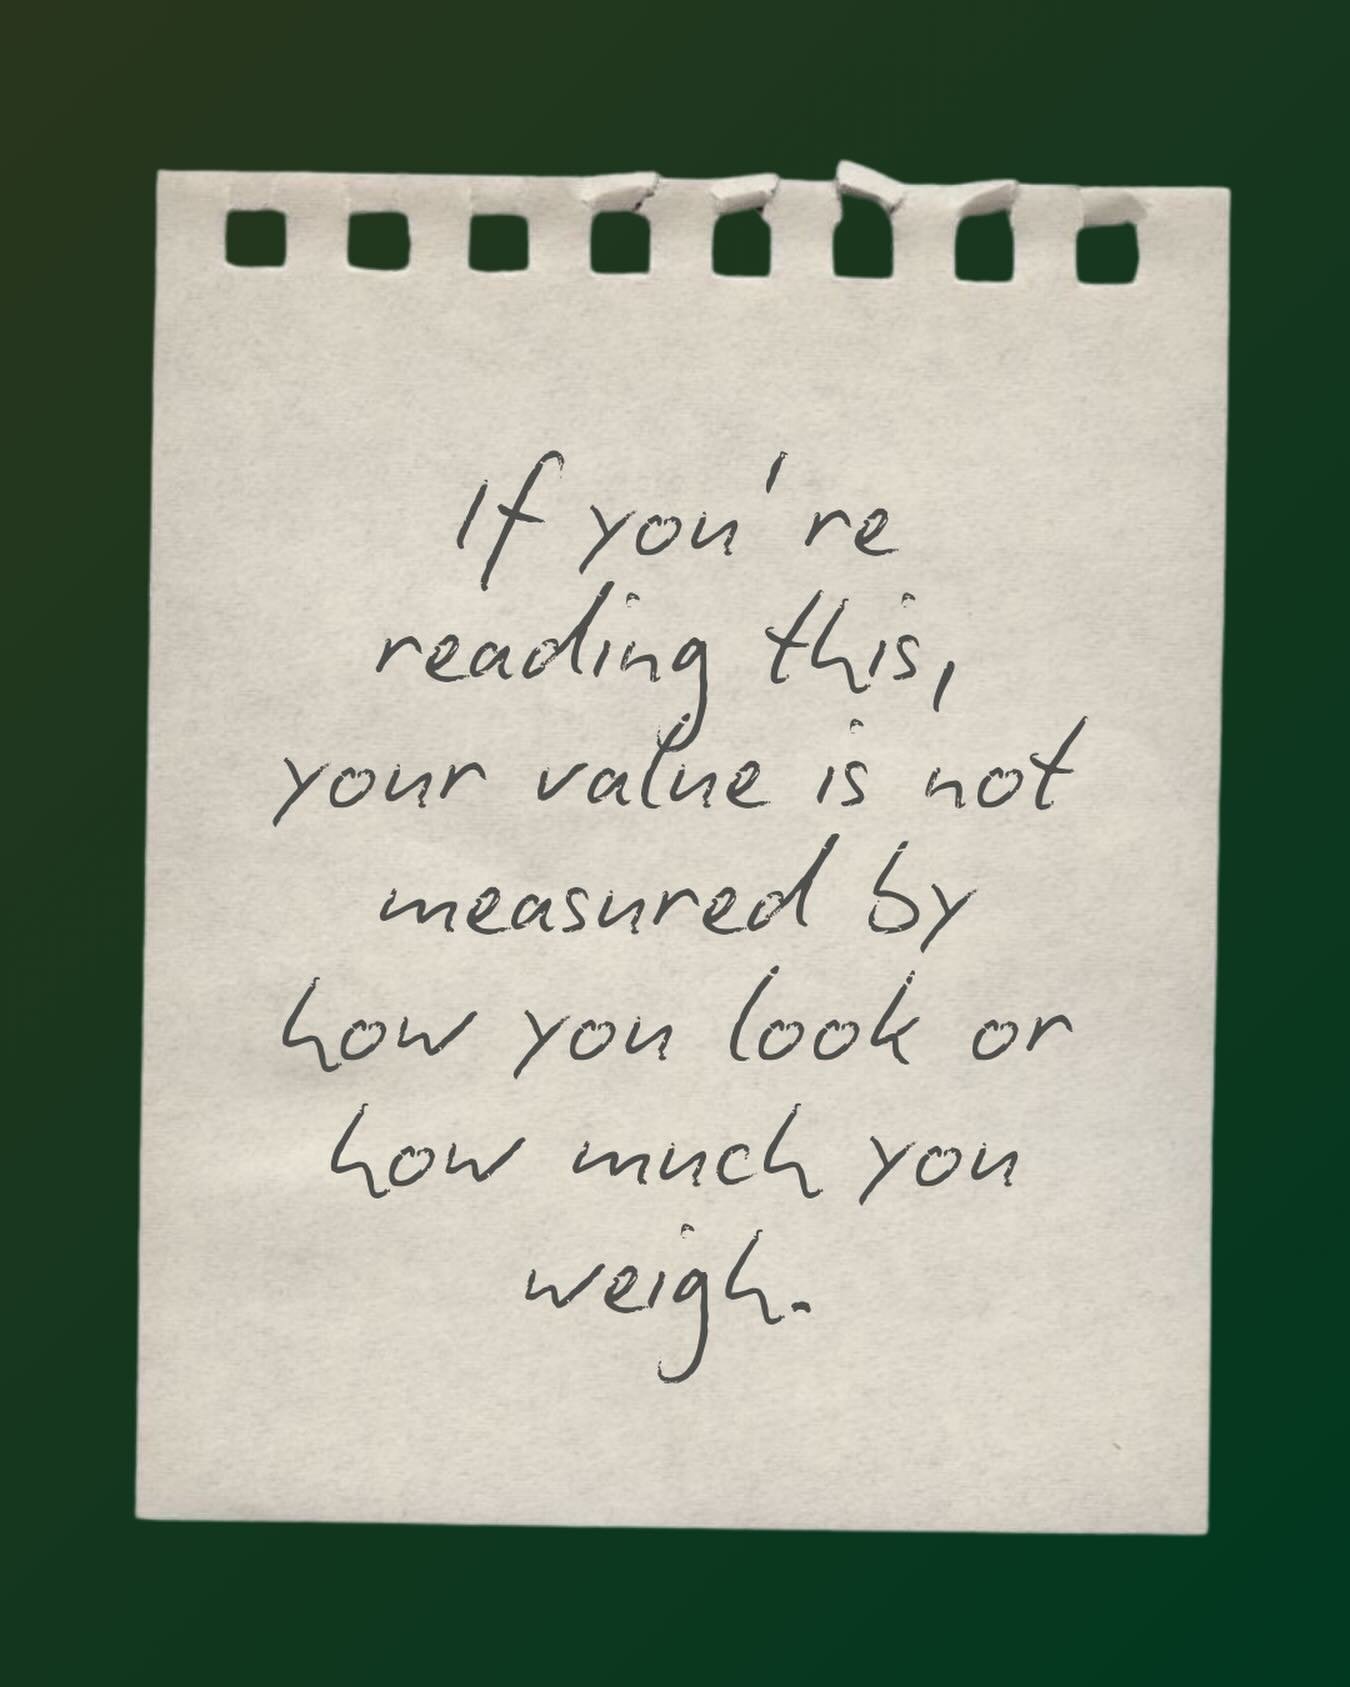 If you're
reading this,
your value is not
measured by
how you look or
how much you
weigh.